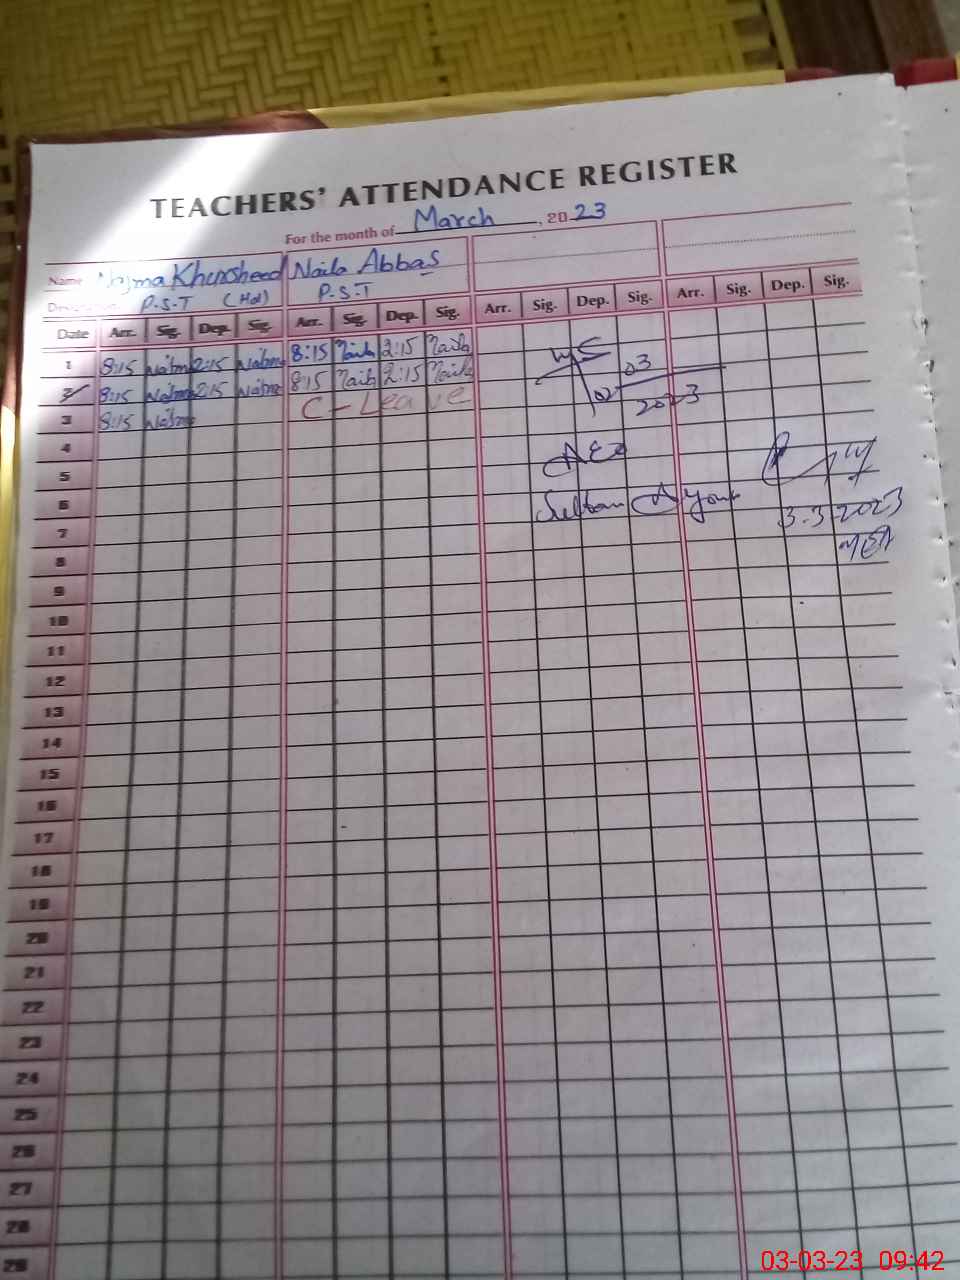 TEACHERS' ATTENDANCE REGISTER
For the month of March, 2023
Name Najma Khursheed Naila Abbas
P.S.T (Hd) P.S.T
Date Arr. Sig. Dep. Sig. Arr. Sig. Dep. Sig. Arr. Sig. Dep. Sig. Arr. Sig. Dep. Sig.
1 8:15 Najma 2:15 Najma 8:15 Naila 2:15 Naila
2 8:15 Najma 2:15 Najma 8:15 Naila 2:15 Naila
3 8:15 Najma C-Leave
03
2023
4
AEO
5
6
Sultan Ayoub
3.3.2023
7
MEA
8
9
10
11
12
13
14
15
16
17
18
19
20
21
22
23
24
25
26
27
28
29
03-03-23 09:42